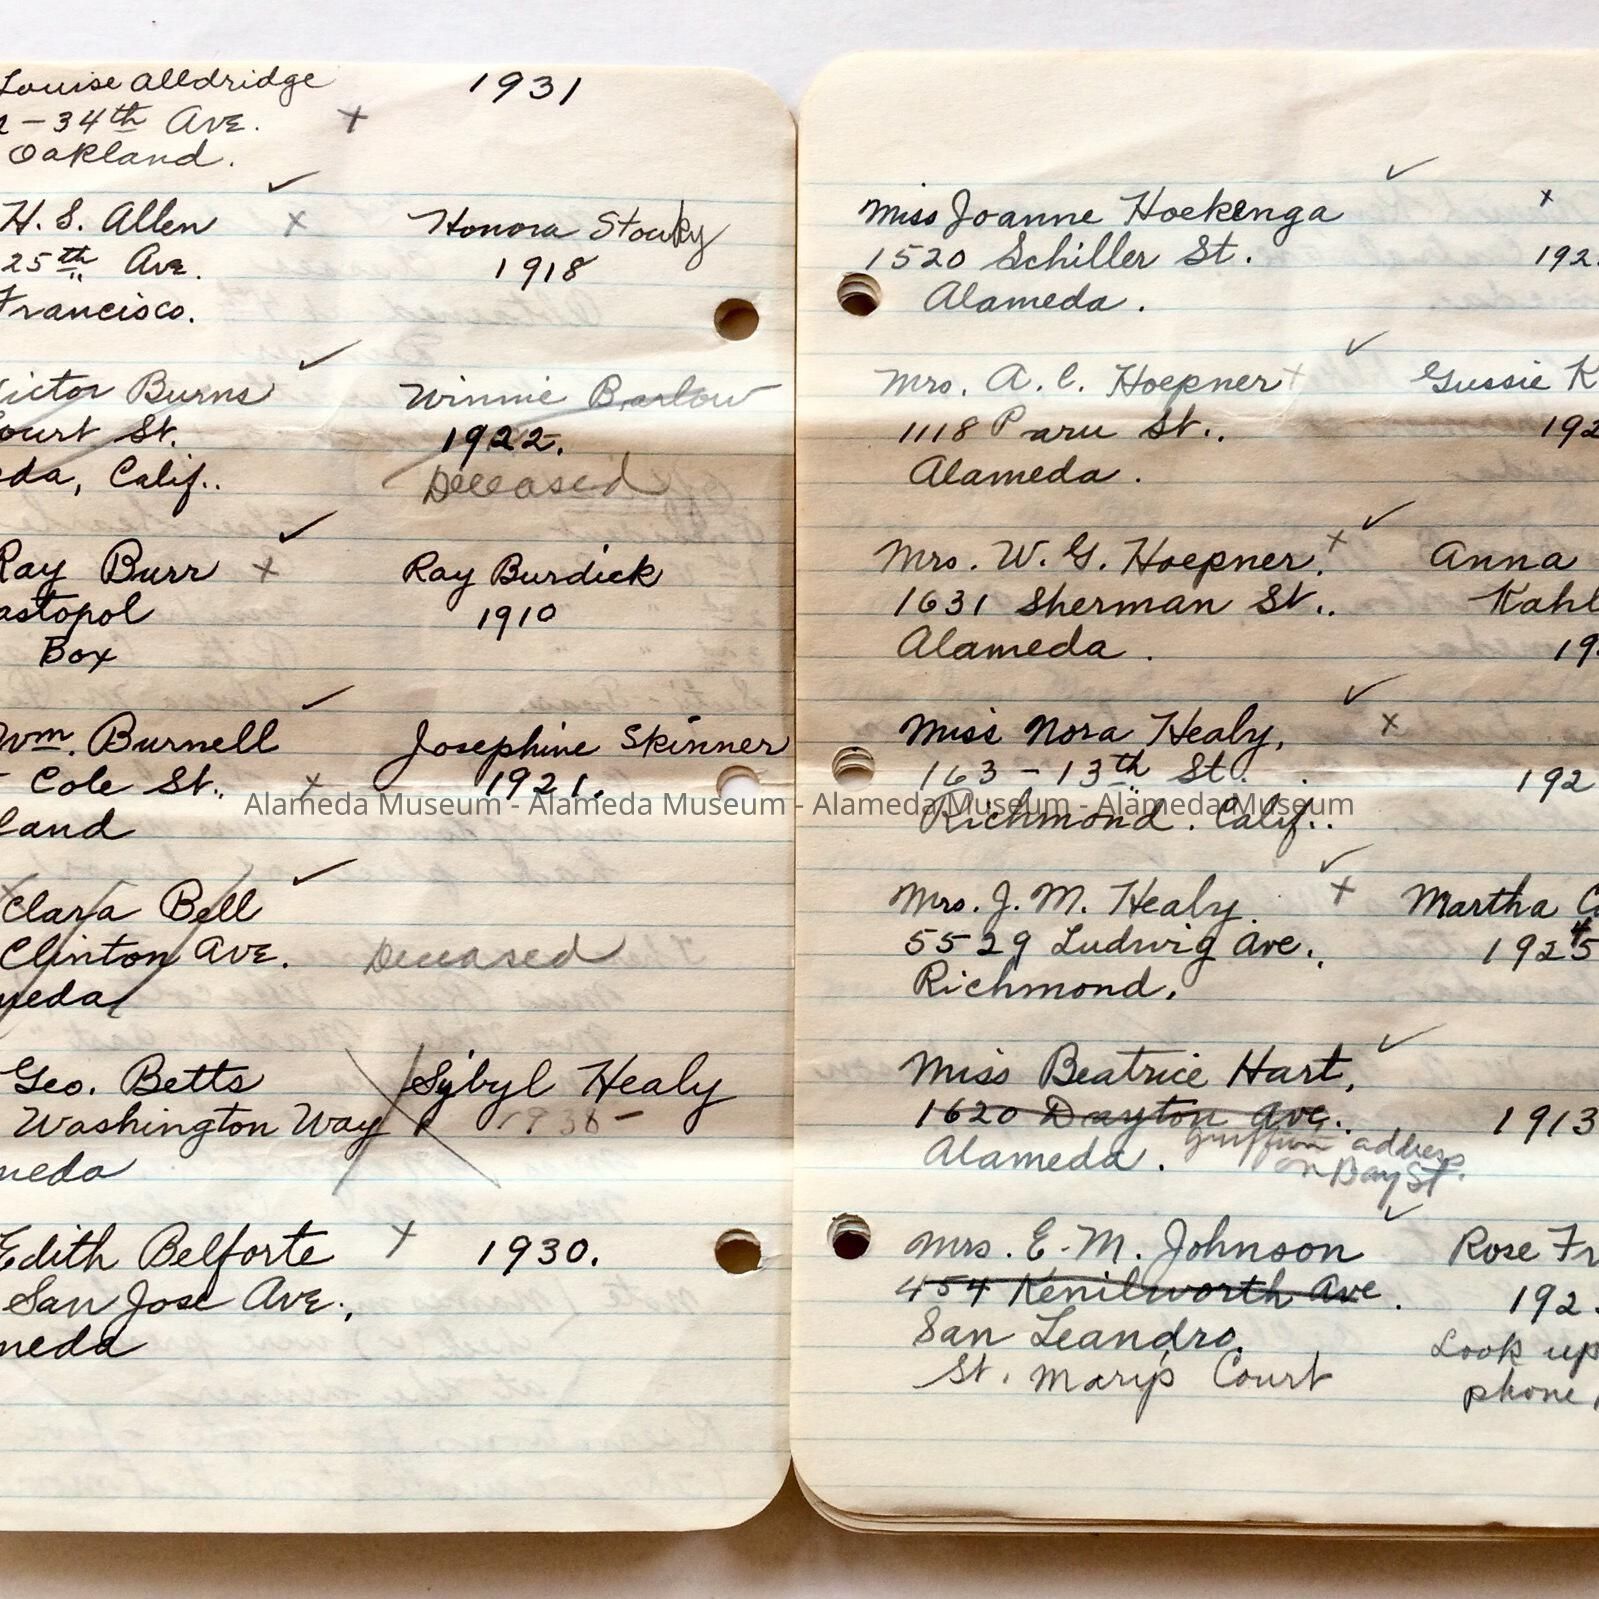 Louise Alldridge 1931
- 34th Ave. x
Oakland.
H. S. Allen x Honora Stouky
25th Ave. 1918
Francisco.
Victor Burns Winnie Barlow
Court St. 1922.
eda, Calif.. Deceased
Ray Burr x Ray Burdick
astopol 1910
Box
Wm. Burnell Josephine Skinner
- Cole St.. x 1921.
land
Clara Bell
Clinton Ave. Deceased
meda
Geo. Betts Sybyl Healy
Washington Way 1938 -
meda
Edith Belforte x 1930.
San Jose Ave.,
meda
Miss Joanne Hoekenga x
1520 Schiller St. 192
Alameda.
Mrs. A. C. Hoepner x Gussie K
1118 Paru St.. 192
Alameda.
Mrs. W. G. Hoepner. x Anna
1631 Sherman St.. Kahl
Alameda. 19
Miss Nora Healy, x
163 - 13th St. 192
Richmond. Calif..
Mrs. J. M. Healy. x Martha C
5529 Ludwig Ave. 1925 4
Richmond.
Miss Beatrice Hart,
1620 Dayton Ave.. 1913
Alameda. address
on Bay St.
Mrs. E. M. Johnson Rose Fr
454 Kenilworth Ave. 192
San Leandro. Look up
St. Mary's Court phone
Alameda Museum - Alameda Museum - Alameda Museum - Alameda Museum